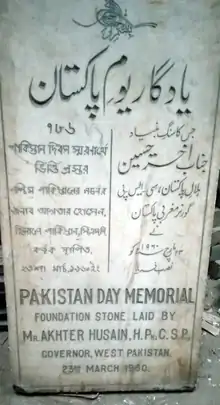 یادگار یوم پاکستان
৭৮৬
পাকিস্তান দিবস স্মরণার্থে
ভিত্তি প্রস্তর
পশ্চিম পাকিস্তানের গভর্নর
জনাব আখতার হোসেন,
হিলালে পাকিস্তান, সি.এস.পি
কর্তৃক স্থাপিত,
২৩শা মার্চ, ১৯৬০ইং
جس کا سنگ بنیاد
جناب اختر حسین
ہلال پاکستان، سی۔ایس۔پی
گورنر مغربی پاکستان
نے
۲۳ مارچ ۱۹۶۰ کو
نصب فرمایا
PAKISTAN DAY MEMORIAL
FOUNDATION STONE LAID BY
MR. AKHTER HUSAIN, H.PK. C.S.P.
GOVERNOR, WEST PAKISTAN.
23RD MARCH 1960.